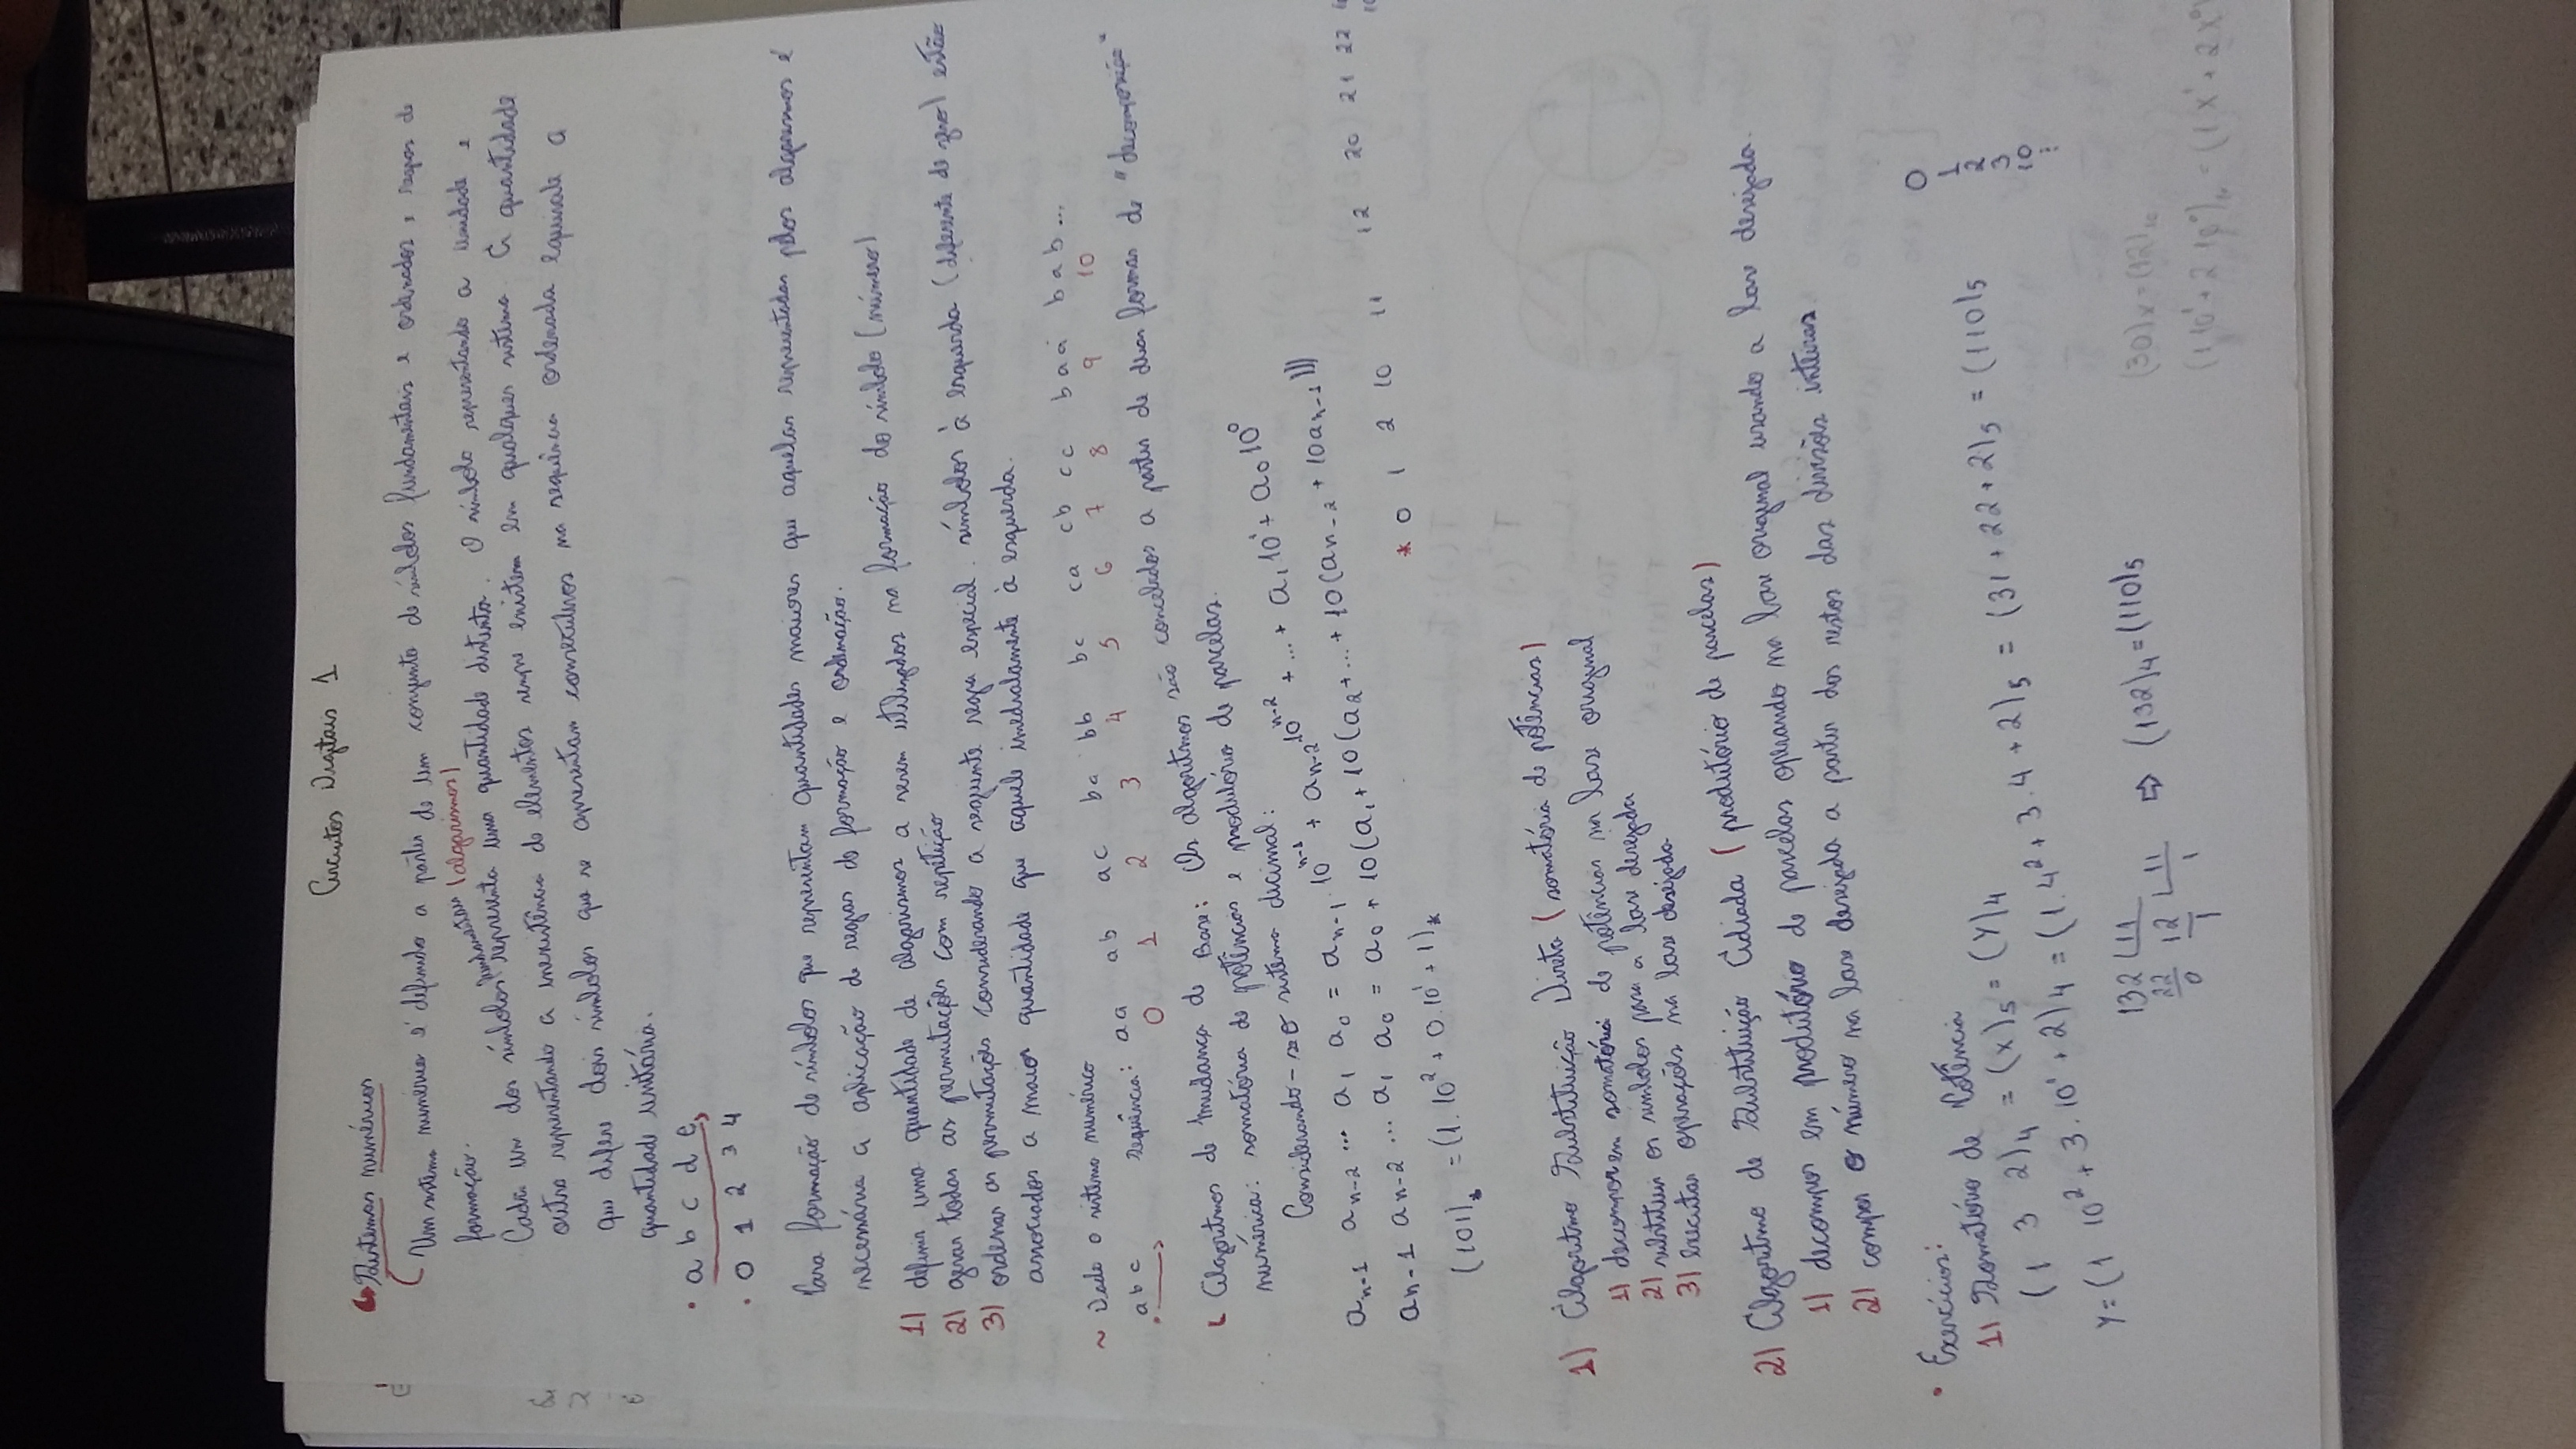 Circuitos Digitais 1
Sistemas numéricos
Um sistema numérico é definido a partir de um conjunto de símbolos fundamentais e ordenados, e regras de
formação.
fundamentais (algarismos)
Cada um dos símbolos representa uma quantidade distinta. O símbolo representando a unidade e
outro representando a inexistência de elementos sempre existem em qualquer sistema. A quantidade
que difere dois símbolos que se apresentam consecutivos na sequência ordenada equivale a
quantidade unitária.
• a b c d e
• 0 1 2 3 4
Para formação de símbolos que representam quantidades maiores que aquelas representadas pelos algarismos é
necessária a aplicação de regras de formação e ordenação.
1) definir uma quantidade de algarismos a serem utilizados na formação do símbolo (número)
2) gerar todas as permutações com repetição
3) ordenar as permutações considerando a seguinte regra especial. símbolos à esquerda (diferente de zero) estão
associados a maior quantidade que aquele imediatamente à esquerda.
~ Dado o sistema numérico
a b c Sequência: aa ab ac ba bb bc ca cb cc baa bab ...
0 1 2 3 4 5 6 7 8 9 10
Algoritmos de Mudança de Base: Os algoritmos são concebidos a partir de duas formas de "decomposição"
numérica: somatória de potências e produtório de parcelas.
Considerando-se o sistema decimal:
aₙ₋₁ aₙ₋₂ ... a₁ a₀ = aₙ₋₁ . 10ⁿ⁻¹ + aₙ₋₂ . 10ⁿ⁻² + ... + a₁ 10¹ + a₀ 10⁰
aₙ₋₁ aₙ₋₂ ... a₁ a₀ = a₀ + 10(a₁ + 10(a₂ + ... + 10(aₙ₋₂ + 10aₙ₋₁)))
* 0 1 2 10 11 12 20 21 22
(101)* = (1.10² + 0.10¹ + 1)*
1) Algoritmo Substituição Direta (somatória de potências)
1) decompor em somatória de potências na base original
2) substituir os símbolos para a base desejada
3) executar operações na base desejada
2) Algoritmo de Substituição (produtório de parcelas)
1) decompor em produtório de parcelas operando na base original usando a base desejada.
2) compor o número na base desejada a partir dos restos das divisões inteiras
• Exercícios:
1) Somatório de Potência
(1 3 2)₄ = (X)₅ = (Y)₄
Y = (1 10² + 3.10¹ + 2)₄ = (1.4² + 3.4 + 2)₅ = (31 + 22 + 2)₅ = (110)₅
0
1
2
3
10
...
132 11
22 12 11
0 1 1
⇨ (132)₄ = (110)₅
(30)x = (12)₁₀
(1 10¹ + 2 10⁰)₁₀ = (1 X¹ + 2 X⁰)